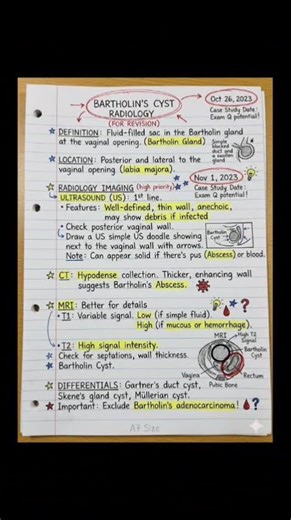 BARTHOLIN'S CYST
RADIOLOGY
(FOR REVISION)
Oct 26, 2023
Case Study Date:
Exam Q potential!
DEFINITION: Fluid-filled sac in the Bartholin gland
at the vaginal opening. (Bartholin Gland)
Simple
blocked
duct and
a swollen
gland
LOCATION: Posterior and lateral to the
vaginal opening (labia majora).
Nov 1, 2023
Case Study Date:
Exam Q potential!
RADIOLOGY IMAGING (high priority!)
ULTRASOUND (US): 1st line.
• Features: Well-defined, thin wall, anechoic,
may show debris if infected
• Check posterior vaginal wall.
Draw a US simple US doodle showing
next to the vaginal wall with arrows.
Bartholin
Cyst
Note: Can appear solid if there's pus (Abscess) or blood.
CT: Hypodense collection. Thicker, enhancing wall
suggests Bartholin's Abscess.
MRI: Better for details
• T1: Variable signal. Low (if simple fluid).
High (if mucous or hemorrhage).
• T2: High signal intensity.
Check for septations, wall thickness.
Bartholin Cyst.
MRI
High T2
Signal
Bartholin
Cyst
Vagina
Rectum
Pubic Bone
DIFFERENTIALS: Gartner's duct cyst,
Skene's gland cyst, Müllerian cyst.
Important: Exclude Bartholin's adenocarcinoma! ?
A7 Size